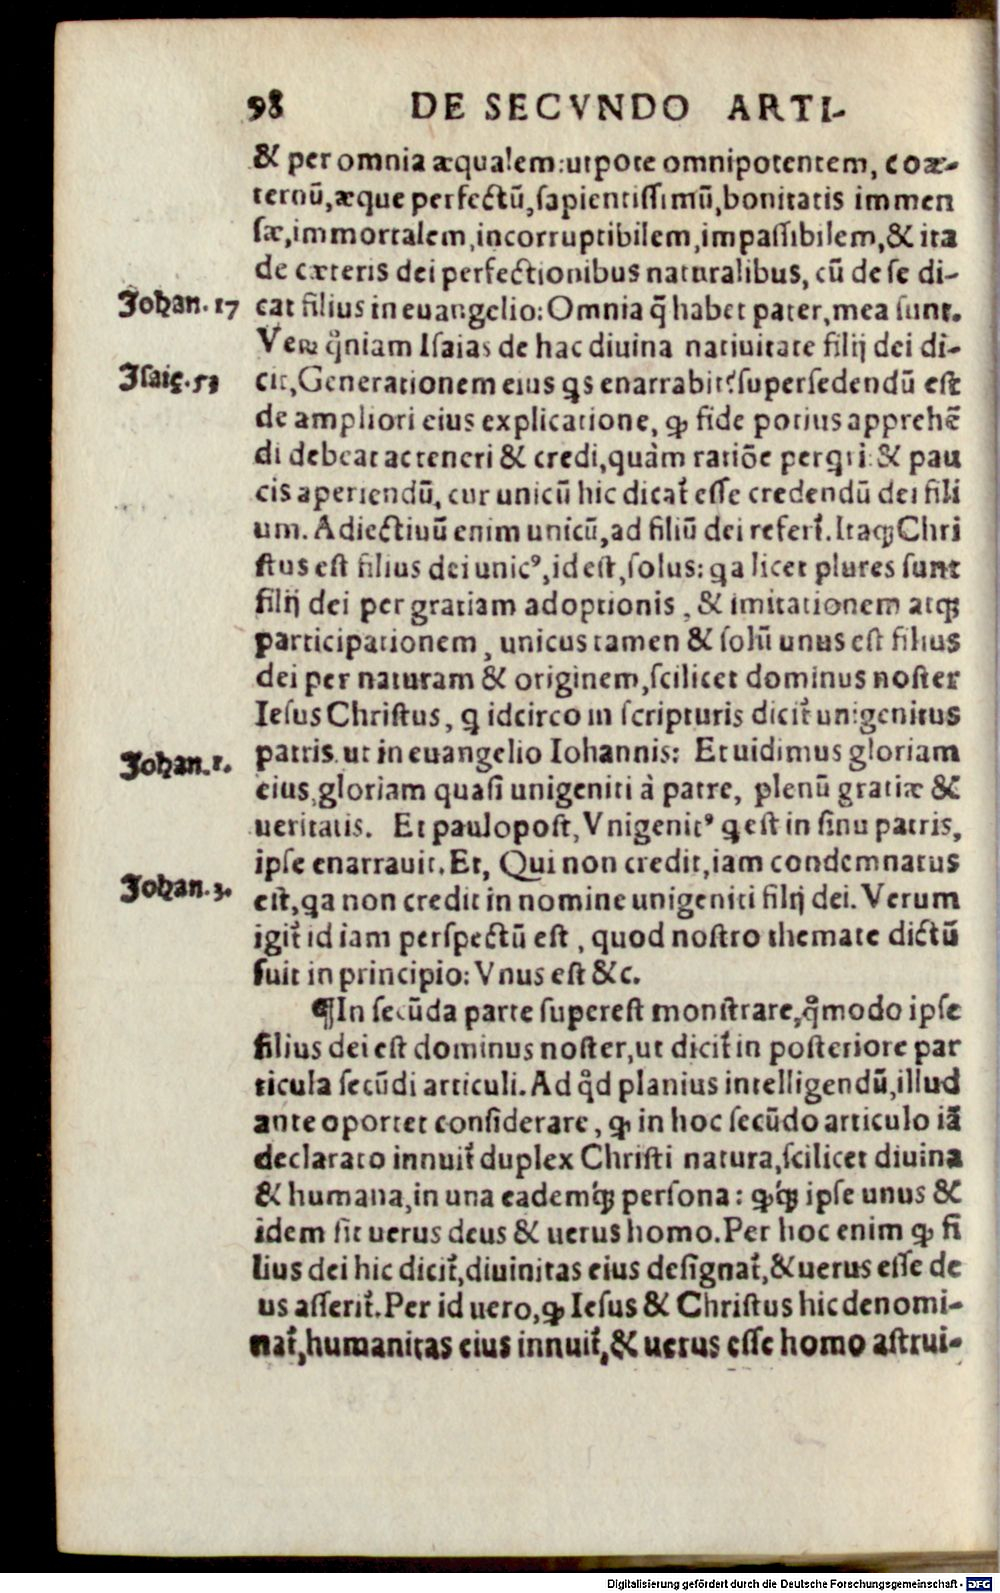 98 DE SECVNDO ARTI-
& per omnia æqualem: utpote omnipotentem, coæ-
ternũ, æque perfectũ, sapientissimũ, bonitatis immen
sæ, immortalem, incorruptibilem, impassibilem, & ita
de cæteris dei perfectionibus naturalibus, cũ de se di-
Johan. 17 cat filius in euangelio: Omnia q̃ habet pater, mea sunt.
Veꝝ qͦniam Isaias de hac diuina natiuitate filij dei di-
Isaię. 53 cit, Generationem eius ꝗs enarrabit? supersedendũ est
de ampliori eius explicatione, ꝙ fide potius apprehẽ
di debeat ac teneri & credi, quàm ratiõe perꝗri: & pau
cis aperiendũ, cur unicũ hic dicat᷑ esse credendũ dei fili
um. Adiectiuũ enim unicũ, ad filiũ dei refert᷑. Itaqꝫ Chri
stus est filius dei unicꝰ, id est, solus: ꝗa licet plures sunt
filij dei per gratiam adoptionis, & imitationem atqꝫ
participationem, unicus tamen & solũ unus est filius
dei per naturam & originem, scilicet dominus noster
Iesus Christus, ꝗ idcirco in scripturis dicit᷑ unigenitus
Johan. 1. patris. ut in euangelio Iohannis: Et uidimus gloriam
eius, gloriam quasi unigeniti à patre, plenũ gratiæ &
ueritatis. Et paulopost, Vnigenitꝰ ꝗ est in sinu patris,
ipse enarrauit. Et, Qui non credit, iam condemnatus
Johan. 3. est, ꝗa non credit in nomine unigeniti filij dei. Verum
igit᷑ id iam perspectũ est, quod nostro themate dictũ
fuit in principio: Vnus est &c.
¶In secũda parte superest monstrare, qͦmodo ipse
filius dei est dominus noster, ut dicit᷑ in posteriore par
ticula secũdi articuli. Ad qͦd planius intelligendũ, illud
ante oportet considerare, ꝙ in hoc secũdo articulo iã
declarato innuit᷑ duplex Christi natura, scilicet diuina
& humana, in una eademqꝫ persona: ꝙqꝫ ipse unus &
idem sit uerus deus & uerus homo. Per hoc enim ꝙ fi
lius dei hic dicit᷑, diuinitas eius designat᷑, & uerus esse de
us asserit᷑. Per id uero, ꝙ Iesus & Christus hic denomi-
nat᷑, humanitas eius innuit᷑, & uerus esse homo astrui-
Digitalisierung gefördert durch die Deutsche Forschungsgemeinschaft - DFG